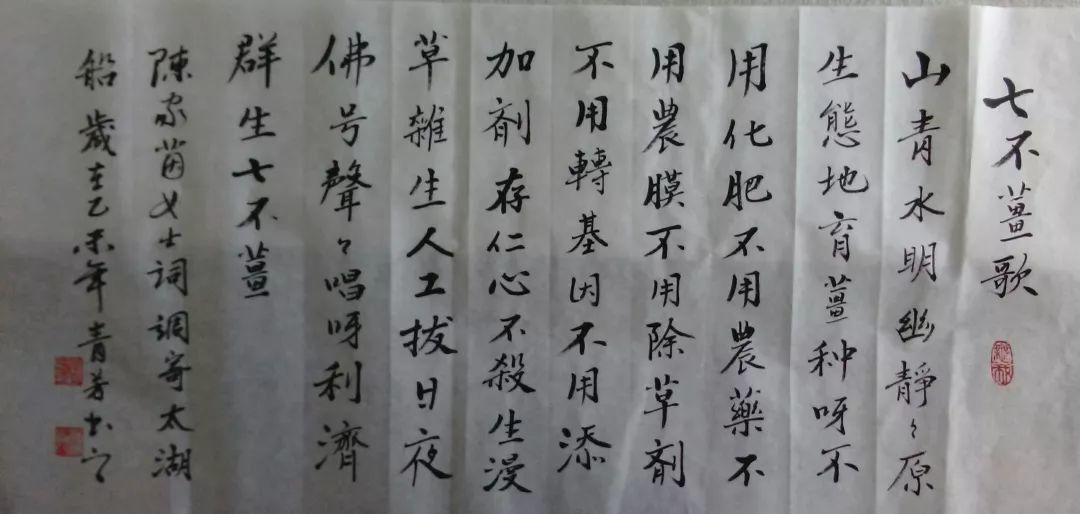 七不薑歌
山青水明幽靜〻原
生態地育薑种呀不
用化肥不用農藥不
用農膜不用除草剤
不用轉基因不用添
加剤存仁心不殺生漫
草雜生人工拔日夜
佛号聲〻唱呀利濟
群生七不薑
陳家茵女士詞調寄太湖
船歲在乙未年青芳书之